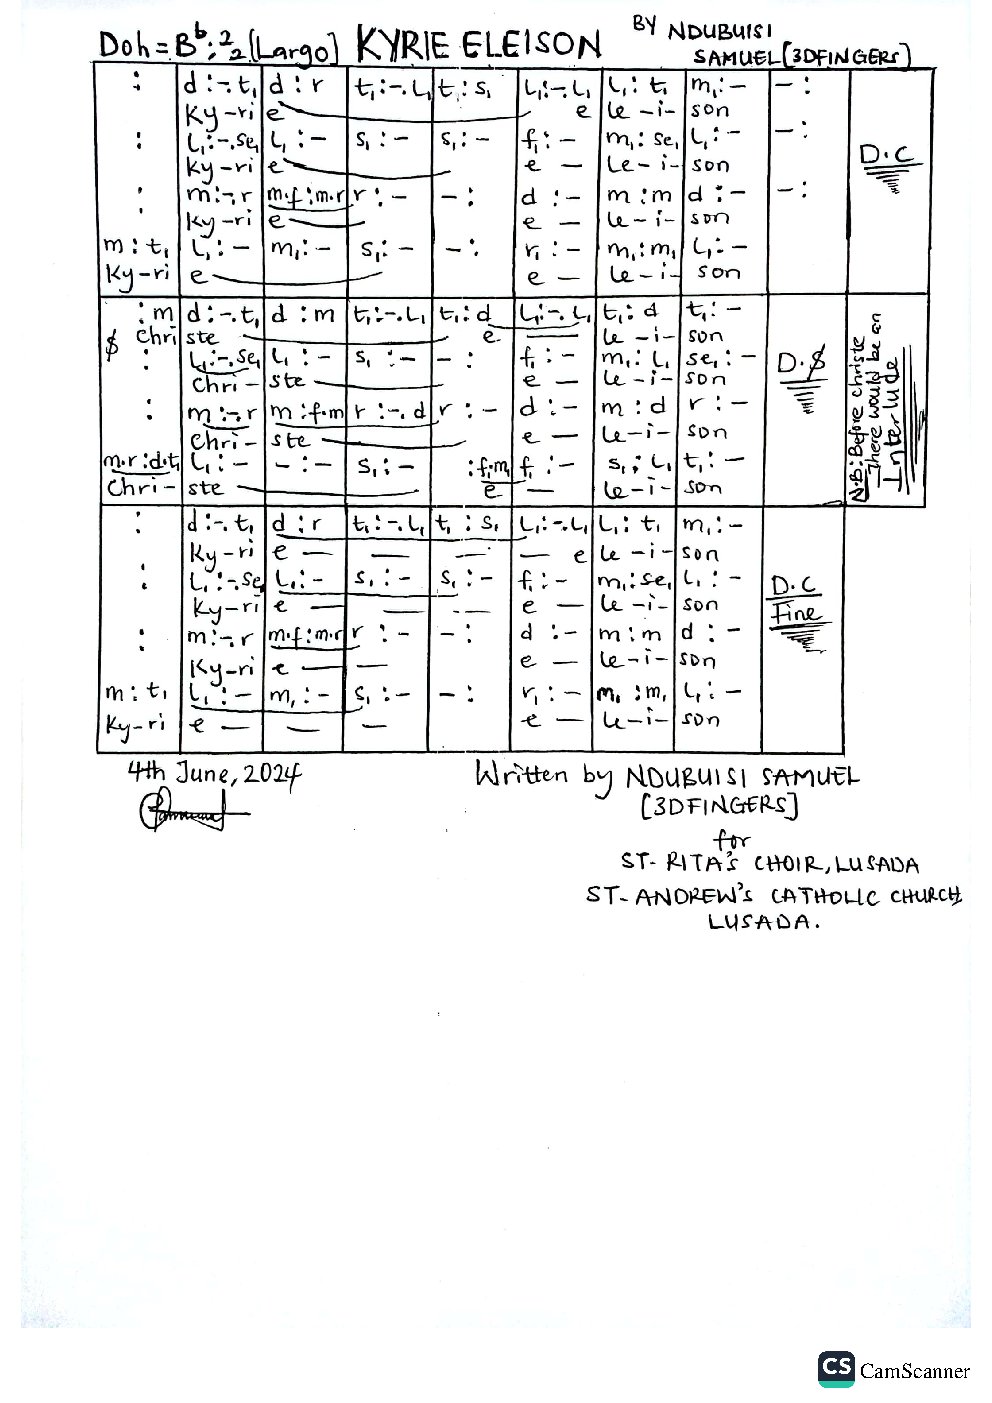 Doh = Bb: 2/2 [Largo] KYRIE ELEISON BY NDUBUISI
SAMUEL [3DFINGERS]
: d :-.t₁ d : r t₁:-.l₁ t₁: s₁ l₁:-.l₁ l₁: t₁ m₁:- - :
Ky-ri e e le-i- son
: l₁:-.se₁ l₁:- s₁:- s₁:- f₁:- m₁: se₁ l₁:- - :
Ky-ri e e - le-i- son D.C
: m:-.r m.f:m.r r :- - : d :- m : m d :- - :
Ky-ri e e - le-i- son
m : t₁ l₁:- m₁:- s₁:- - : r₁:- m₁:m₁ l₁:-
Ky-ri e e - le-i- son
: m d :-.t₁ d : m t₁:-.l₁ t₁: d l₁:-.l₁ t₁: d t₁:-
$ Chri ste e le-i- son
: l₁:-.se₁ l₁:- s₁:- - : f₁:- m₁: l₁ se₁:- D.$
Chri- ste e - le-i- son
: m:-.r m:f.m r :-.d r :- d :- m : d r :-
Chri- ste e - le-i- son
m.r:d.t₁ l₁:- - : s₁:- :f₁.m₁ f₁:- s₁: l₁ t₁:-
Chri- ste e - le-i- son
N.B: Before Christe
There would be an
Interlude
: d :-.t₁ d : r t₁:-.l₁ t₁: s₁ l₁:-.l₁ l₁: t₁ m₁:-
Ky-ri e - - - - e le-i- son
: l₁:-.se₁ l₁:- s₁:- s₁:- f₁:- m₁:se₁ l₁:- D.C
Ky-ri e - - - e - le-i- son Fine
: m:-.r m.f:m.r r :- - : d :- m : m d :-
Ky-ri e - - e - le-i- son
m : t₁ l₁:- m₁:- s₁:- - : r₁:- m₁:m₁ l₁:-
Ky-ri e - - - e - le-i- son
4th June, 2024 Written by NDUBUISI SAMUEL
[3DFINGERS]
for
ST- RITA'S CHOIR, LUSADA
ST- ANDREW'S CATHOLIC CHURCH,
LUSADA.
CS CamScanner